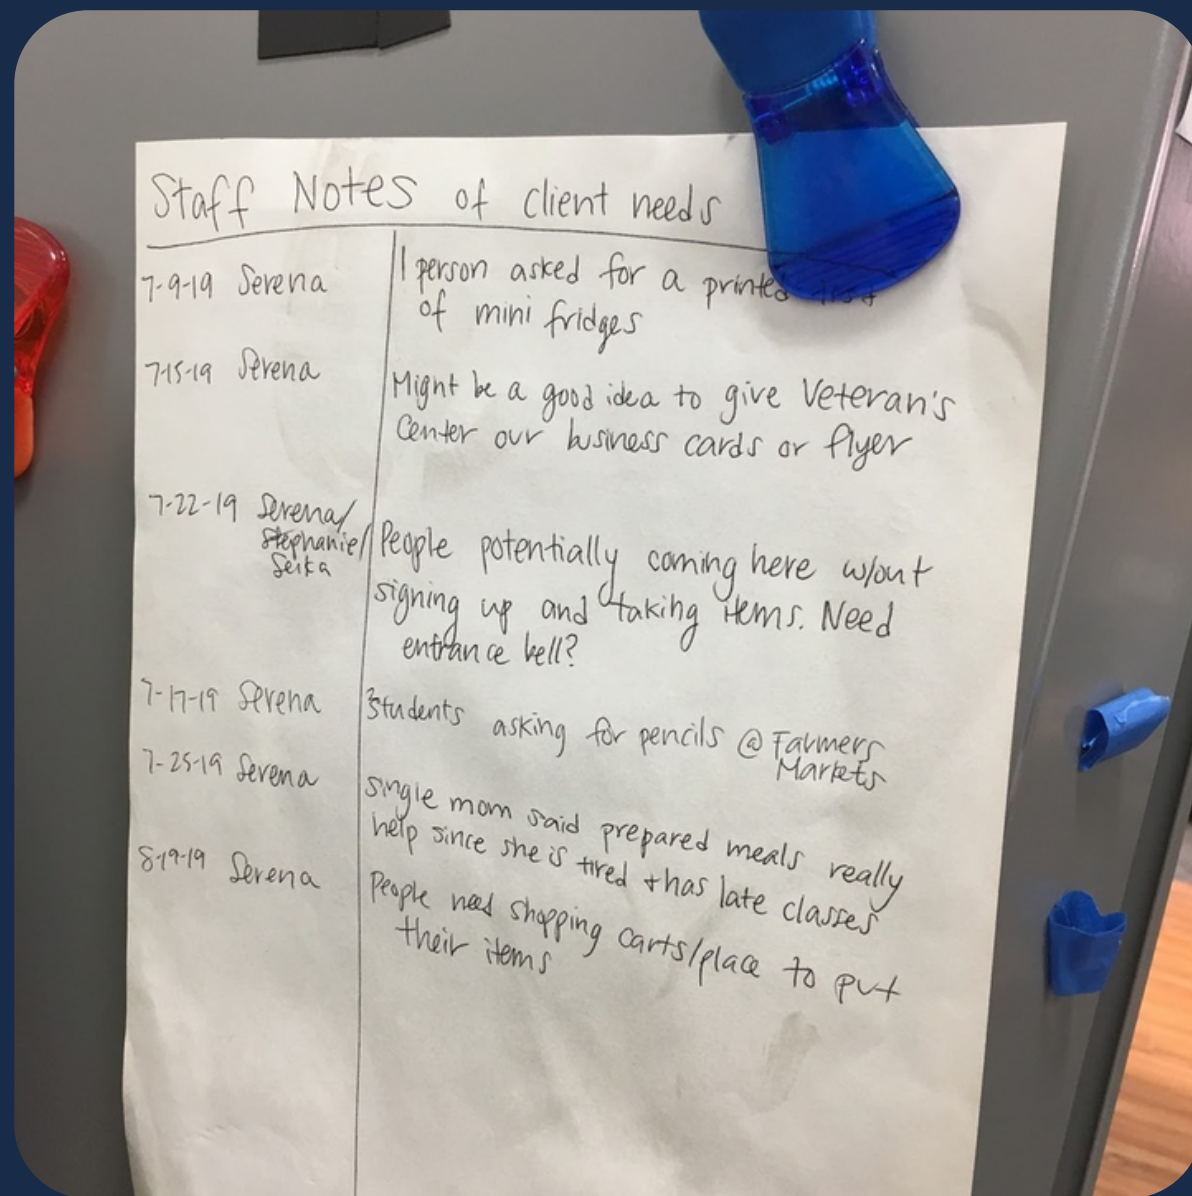 Staff Notes of client needs
7-9-19 Serena
1 person asked for a printed list
of mini fridges
7-15-19 Serena
Might be a good idea to give Veteran's
Center our business cards or flyer
7-22-19 Serena/
Stephanie/
Seika
People potentially coming here w/out
signing up and taking items. Need
entrance bell?
7-17-19 Serena
Students asking for pencils @ Farmers
Markets
7-25-19 Serena
single mom said prepared meals really
help since she is tired + has late classes
8-19-19 Serena
People need shopping carts/place to put
their items